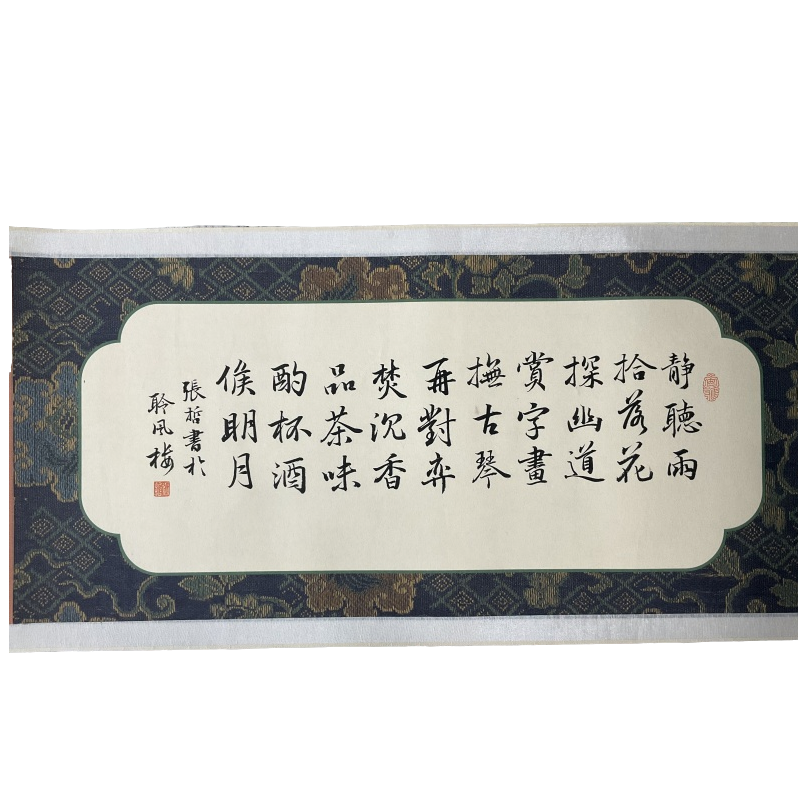 静聽雨
拾落花
探幽道
賞字畫
撫古琴
再對弈
焚沉香
品茶味
酌杯酒
候明月
張哲書於
聆风梅